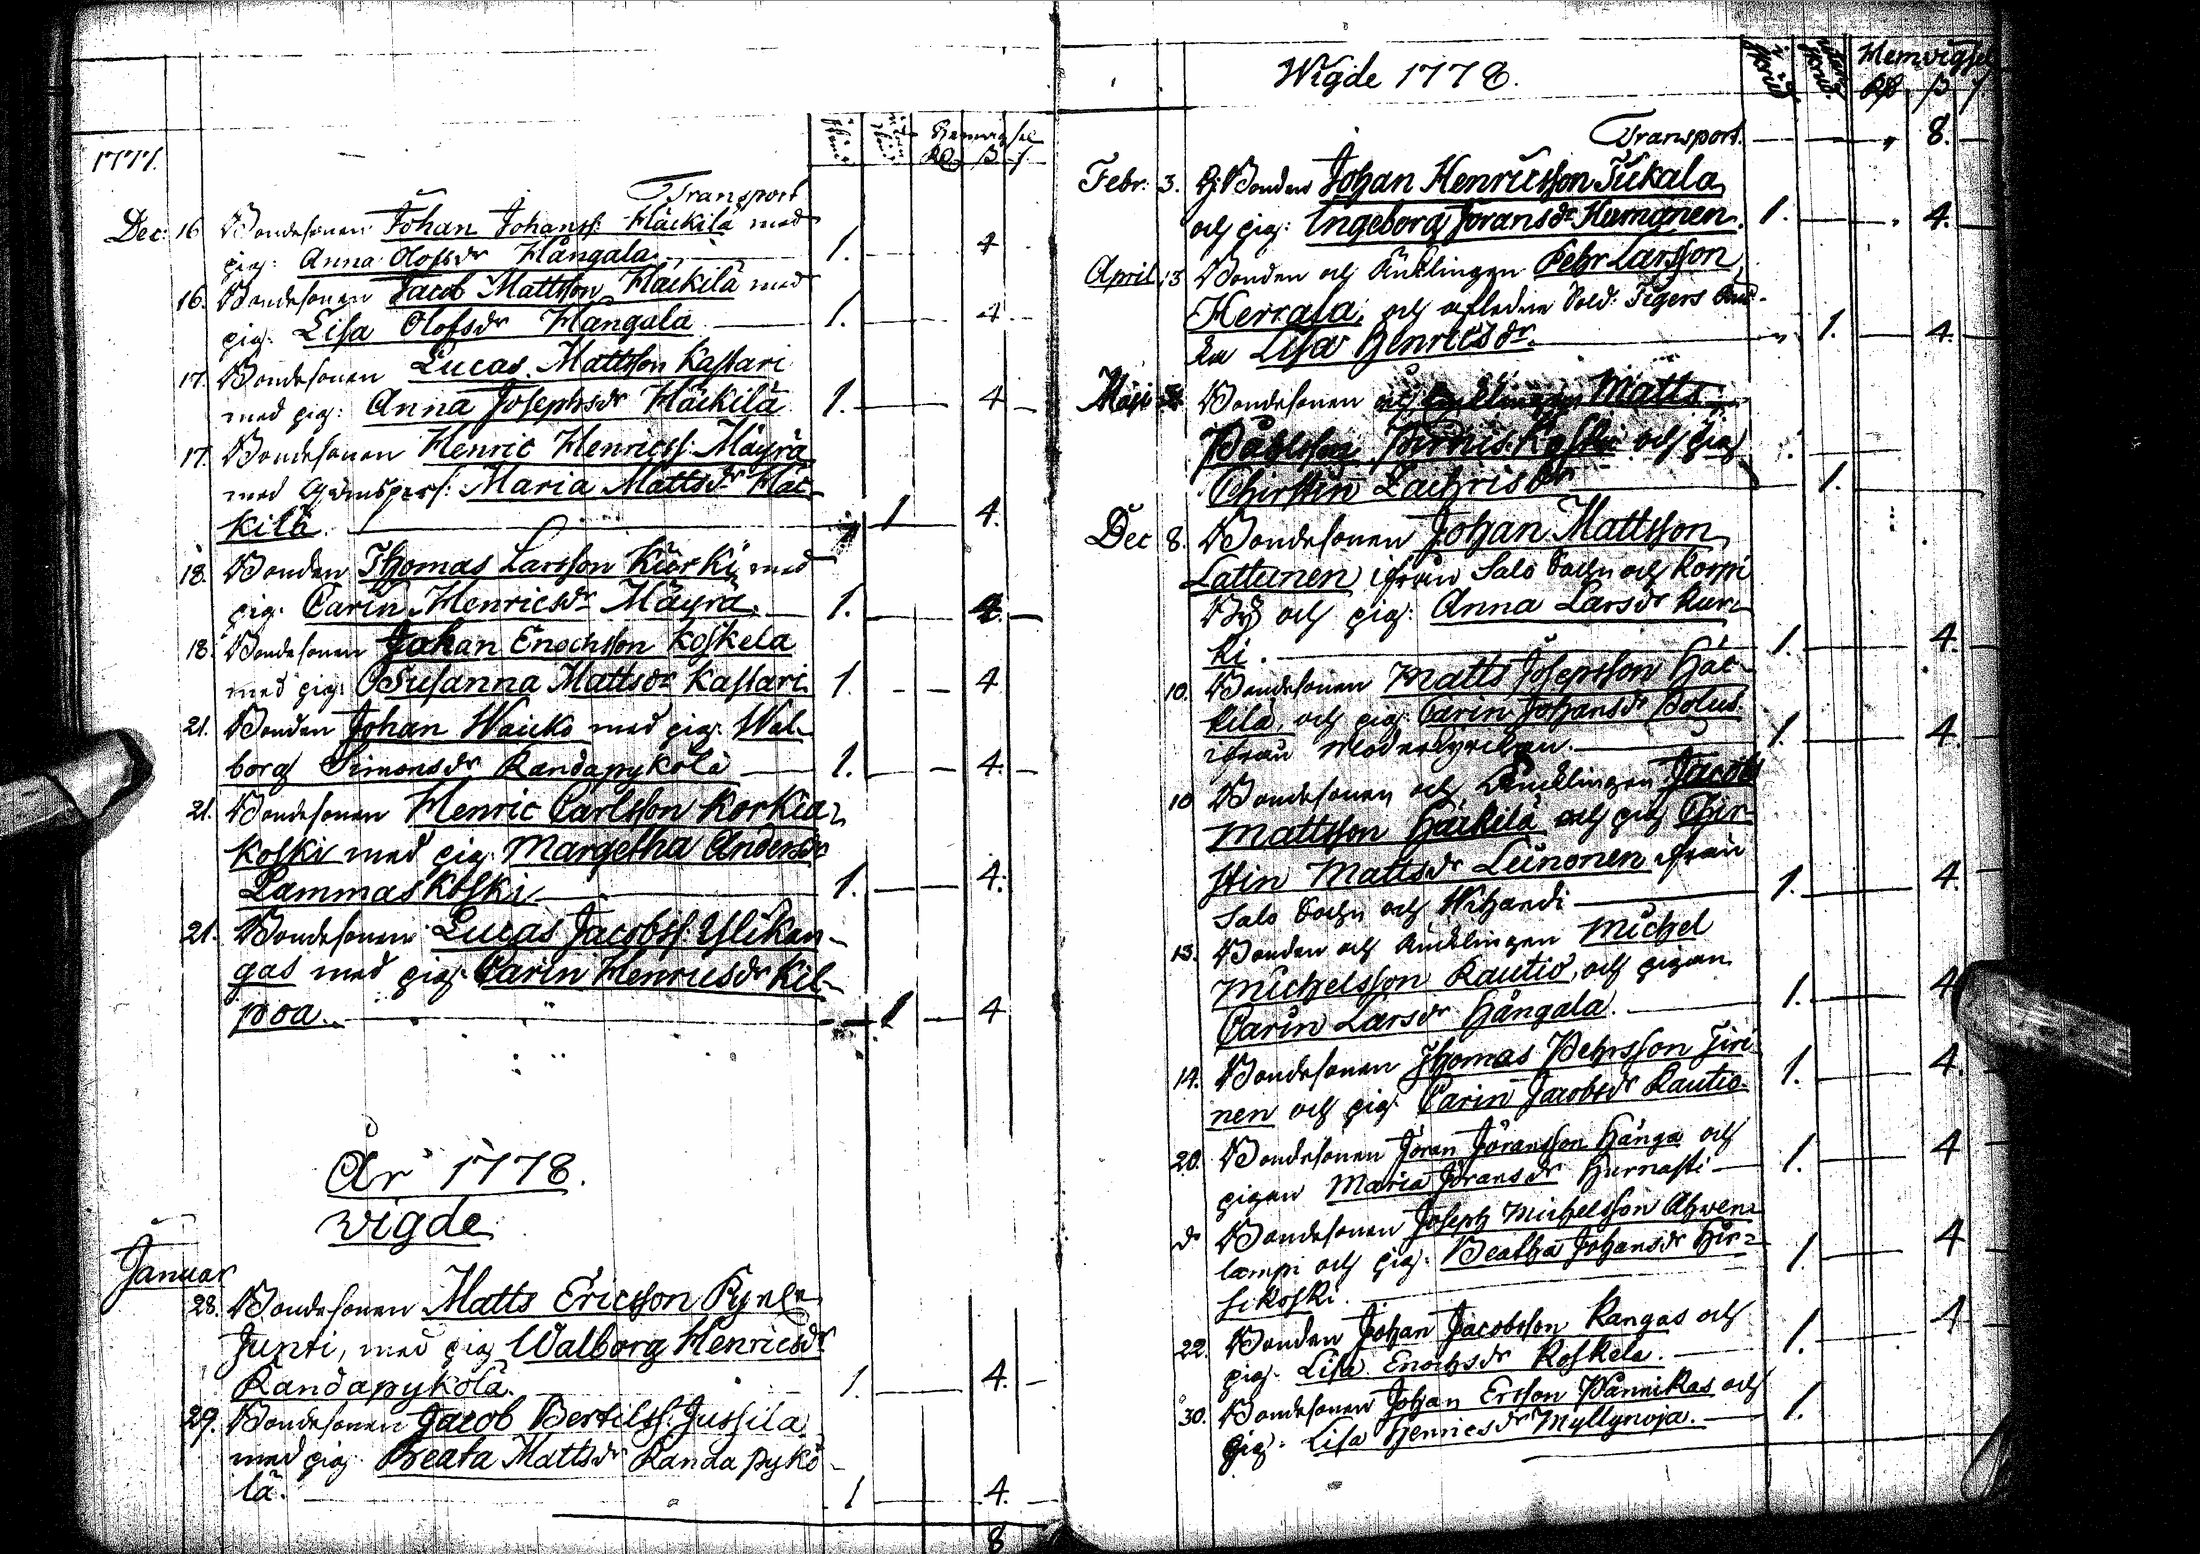 1777.
Transport
Dec: 16. Bondesonen Johan Johanss: Häickilä med
pig: Anna Olofsdr Hångala 1. 4
16. Bondesonen Jacob Mattsson Häickilä med
pig: Lisa Olofsdr Hångala 1. 4
17. Bondesonen Lucas Mattsson Kastari
med pig: Anna Josephsdr Häickilä 1. 4
17. Bondesonen Henric Henricss: Mäyrä
med Maria Mattsdr Häic-
kilä. 1 4.
18. Bonden Thomas Larsson Kiörki med
pig. Carin Henricsdr Mäyrä. 1. 4.
18. Bondesonen Johan Enochsson Koskela
med pig: Susanna Mattsdr Kastari 1. 4
21. Bonden Johan Waicko med pig. Wal-
borg Simonsdr Randapykölä 1. 4.
21. Bondesonen Henric Carlsson Korkia-
koski med pig. Margetha Andersdr
Lammaskoski 1. 4.
21. Bondesonen Lucas Jacobss: Ylikan-
gas med pig. Carin Henricsdr Kil-
poa. 1 4
År 1778.
wigde
Januar
28. Bondesonen Matts Ericsson
Junti, med pig Walborg Henricsdr
Randapykölä. 1. 4.
29. Bondesonen Jacob Bertilss: Jussila
med pig. Beata Mattsdr Randapykö-
lä. 1 4.
8
Wigde 1778.
Hemvigsel
Transport. 8.
Febr: 3. Bonden Johan Henricsson Tiikala
och pig: Ingeborg Joransdr Humanen. 1. 4.
April 13 Bonden och Änklingen Pehr Larsson
Herrala, och afledne Sold: Tigers Änc-
ka Lisa Henricsdr. 1. 4.
Maji Bondesonen Matts
Påhlsson och pig
Chirstin Zachrisdr 1.
Dec 8. Bondesonen Johan Mattsson
Lattunen ifrån Salo Sochn och Korpi
By och pig: Anna Larsdr Kur-
ki. 1. 4.
10. Bondesonen Matts Josepsson Häc-
kilä, och pig: Carin Johansdr Polus
ifrån Moderkyrckan. 1. 4.
10 Bondesonen och Änklingen Jacob
Mattsson Häickilä och pig Chir-
stin Mattsdr Leinonen ifrån
Salo Sochn och Wihandi 1. 4.
13. Bonden och Änklingen Michel
Michelsson Rautio, och pigan
Carin Larsdr Hångala. 1. 4
14. Bondesonen Thomas Pehrsson Tiri-
nen och pig. Carin Jacobsdr Rautio. 1. 4.
20. Bondesonen Jöran Jöransson Hånga och
pigan Maria Jöransdr Hurnasti 1. 4
do Bondesonen Joseph Michelsson Ahwen-
lampi och pig. Beatha Johansdr Hir-
sikoski. 1. 4
22. Bonden Johan Jacobsson Kangas och
pig. Lisa Enochsdr Koskela. 1. 4
30. Bondesonen Johan Ersson Pännikas och
pig. Lisa Henricsdr Myllynoja. 1.